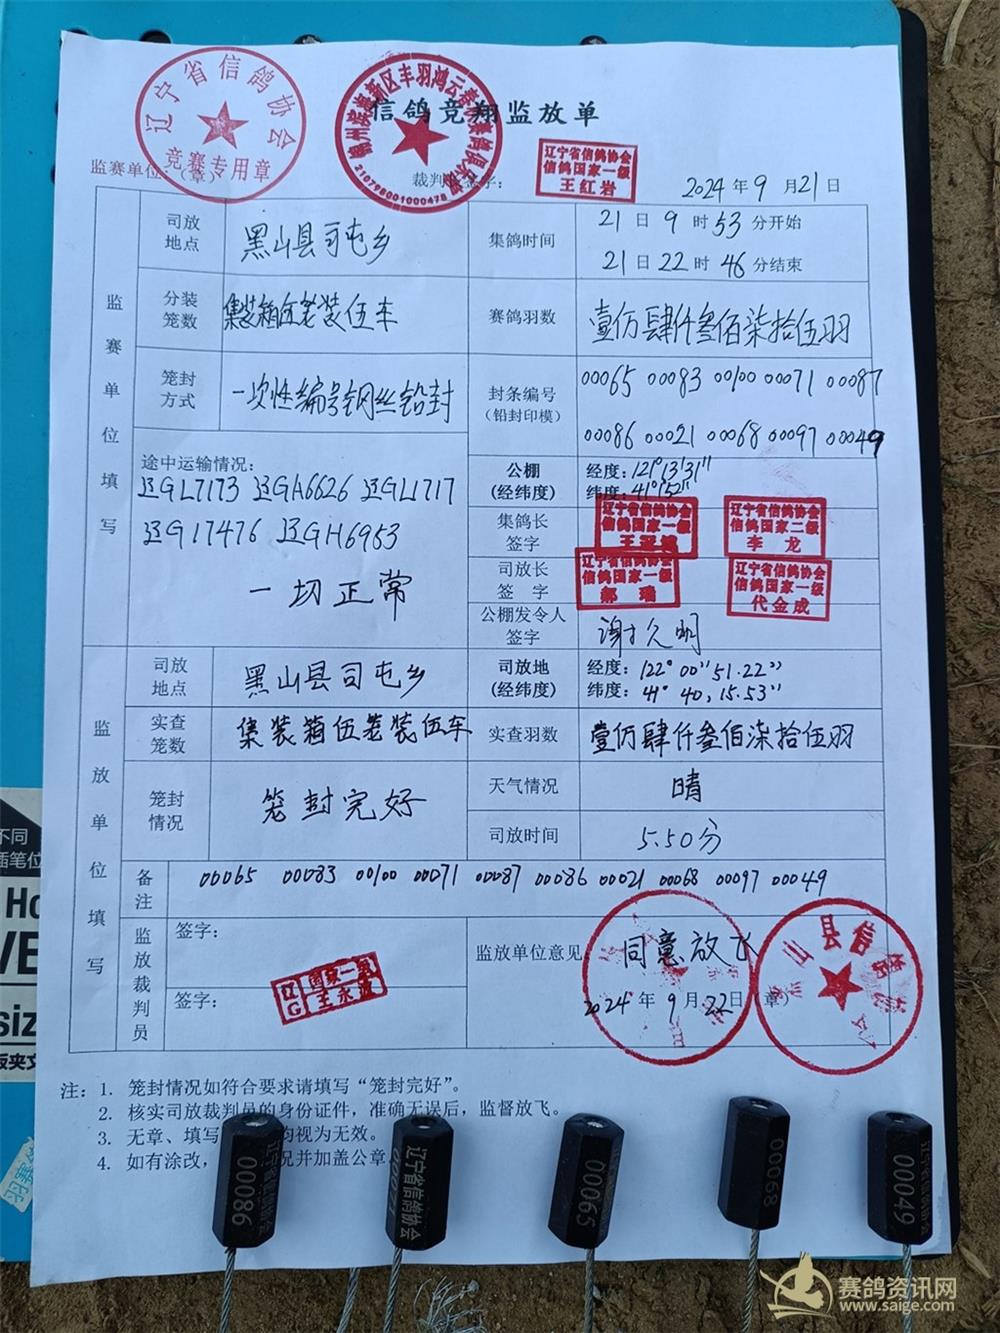 辽宁省信鸽协会
竞赛专用章
2107980010004​78
信鸽竞翔监放单
监赛单位:(章)
签字:
辽宁省信鸽协会
信鸽国家一级
王红岩
2024年9月21日
监赛单位填写
司放地点
黑山县司屯乡
集鸽时间
21日9时53分开始
21日22时46分结束
分装笼数
集装箱伍笼装伍车
赛鸽羽数
壹仟肆仟叁佰柒拾伍羽
笼封方式
一次性编号钢丝铅封
封条编号
(铅封印模)
00065 00083 00100 00071 00087
00086 00021 00068 00097 00049
途中运输情况:
辽GL7173 辽GA6626 辽GL1717
辽G17476 辽GH6953
一切正常
公棚
(经纬度)
经度:121°13'31"
纬度:41°1'52"
集鸽长
签字
辽宁省信鸽协会
信鸽国家一级
辽宁省信鸽协会
信鸽国家二级
李龙
司放长
签字
辽宁省信鸽协会
信鸽国家一级
郝瑞
辽宁省信鸽协会
信鸽国家一级
代金成
公棚发令人
签字
谢久明
监放单位填写
司放地点
黑山县司屯乡
司放地
(经纬度)
经度:122°00"51.22"
纬度:41°40,15.53"
实查笼数
集装箱伍笼装伍车
实查羽数
壹万肆仟叁佰柒拾伍羽
笼封情况
笼封完好
天气情况
晴
司放时间
5.50分
备注
00065 00083 00100 00071 00087 00086 00021 00068 00097 00049
监放裁判员
签字:
签字:
辽G
国家一级
监放单位意见
同意放飞
2024年9月22日(章)
县信鸽
注:1. 笼封情况如符合要求请填写“笼封完好”。
2. 核实司放裁判员的身份证件,准确无误后,监督放飞。
3. 无章、填写 均视为无效。
4. 如有涂改, 况并加盖公章
00086
辽宁省信鸽协会
00071
00065
00068
00049
不同
插笔位
赛鸽资讯网
www.saige.com